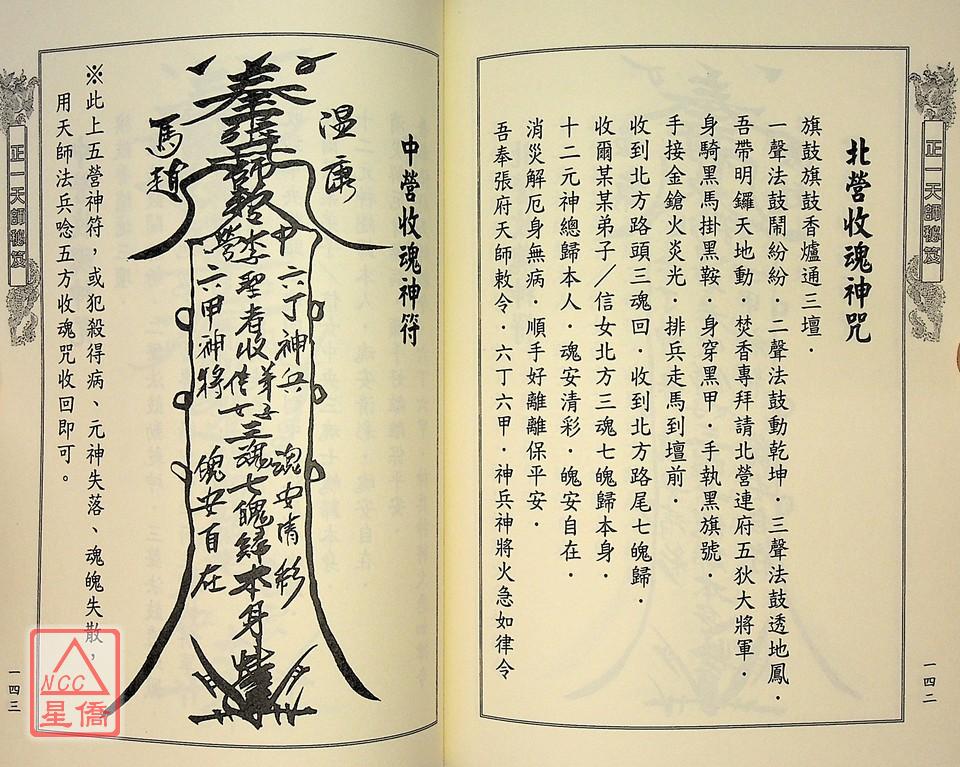 正一天師秘笈
北營收魂神咒
旗鼓旗鼓香爐通三壇．
一聲法鼓鬧紛紛．二聲法鼓動乾坤．三聲法鼓透地鳳．
吾帶明鑼天地動．焚香專拜請北營連府五狄大將軍．
身騎黑馬掛黑鞍．身穿黑甲．手執黑旗號．
手接金鎗火炎光．排兵走馬到壇前．
收到北方路頭三魂回．收到北方路尾七魄歸．
收爾某某弟子／信女北方三魂七魄歸本身．
十二元神總歸本人．魂安清彩．魄安自在．
消災解厄身無病．順手好離離保平安．
吾奉張府天師敕令．六丁六甲．神兵神將火急如律令
一四二
中營收魂神符
溫康
馬趙
奉
中
六丁神兵
魂安清彩
營李聖者收弟子
信士三魂七魄歸本身
六甲神將
魄安自在
※此上五營神符，或犯殺得病、元神失落、魂魄失散，
用天師法兵唸五方收魂咒收回即可。
正一天師秘笈
一四三
NCC
星僑